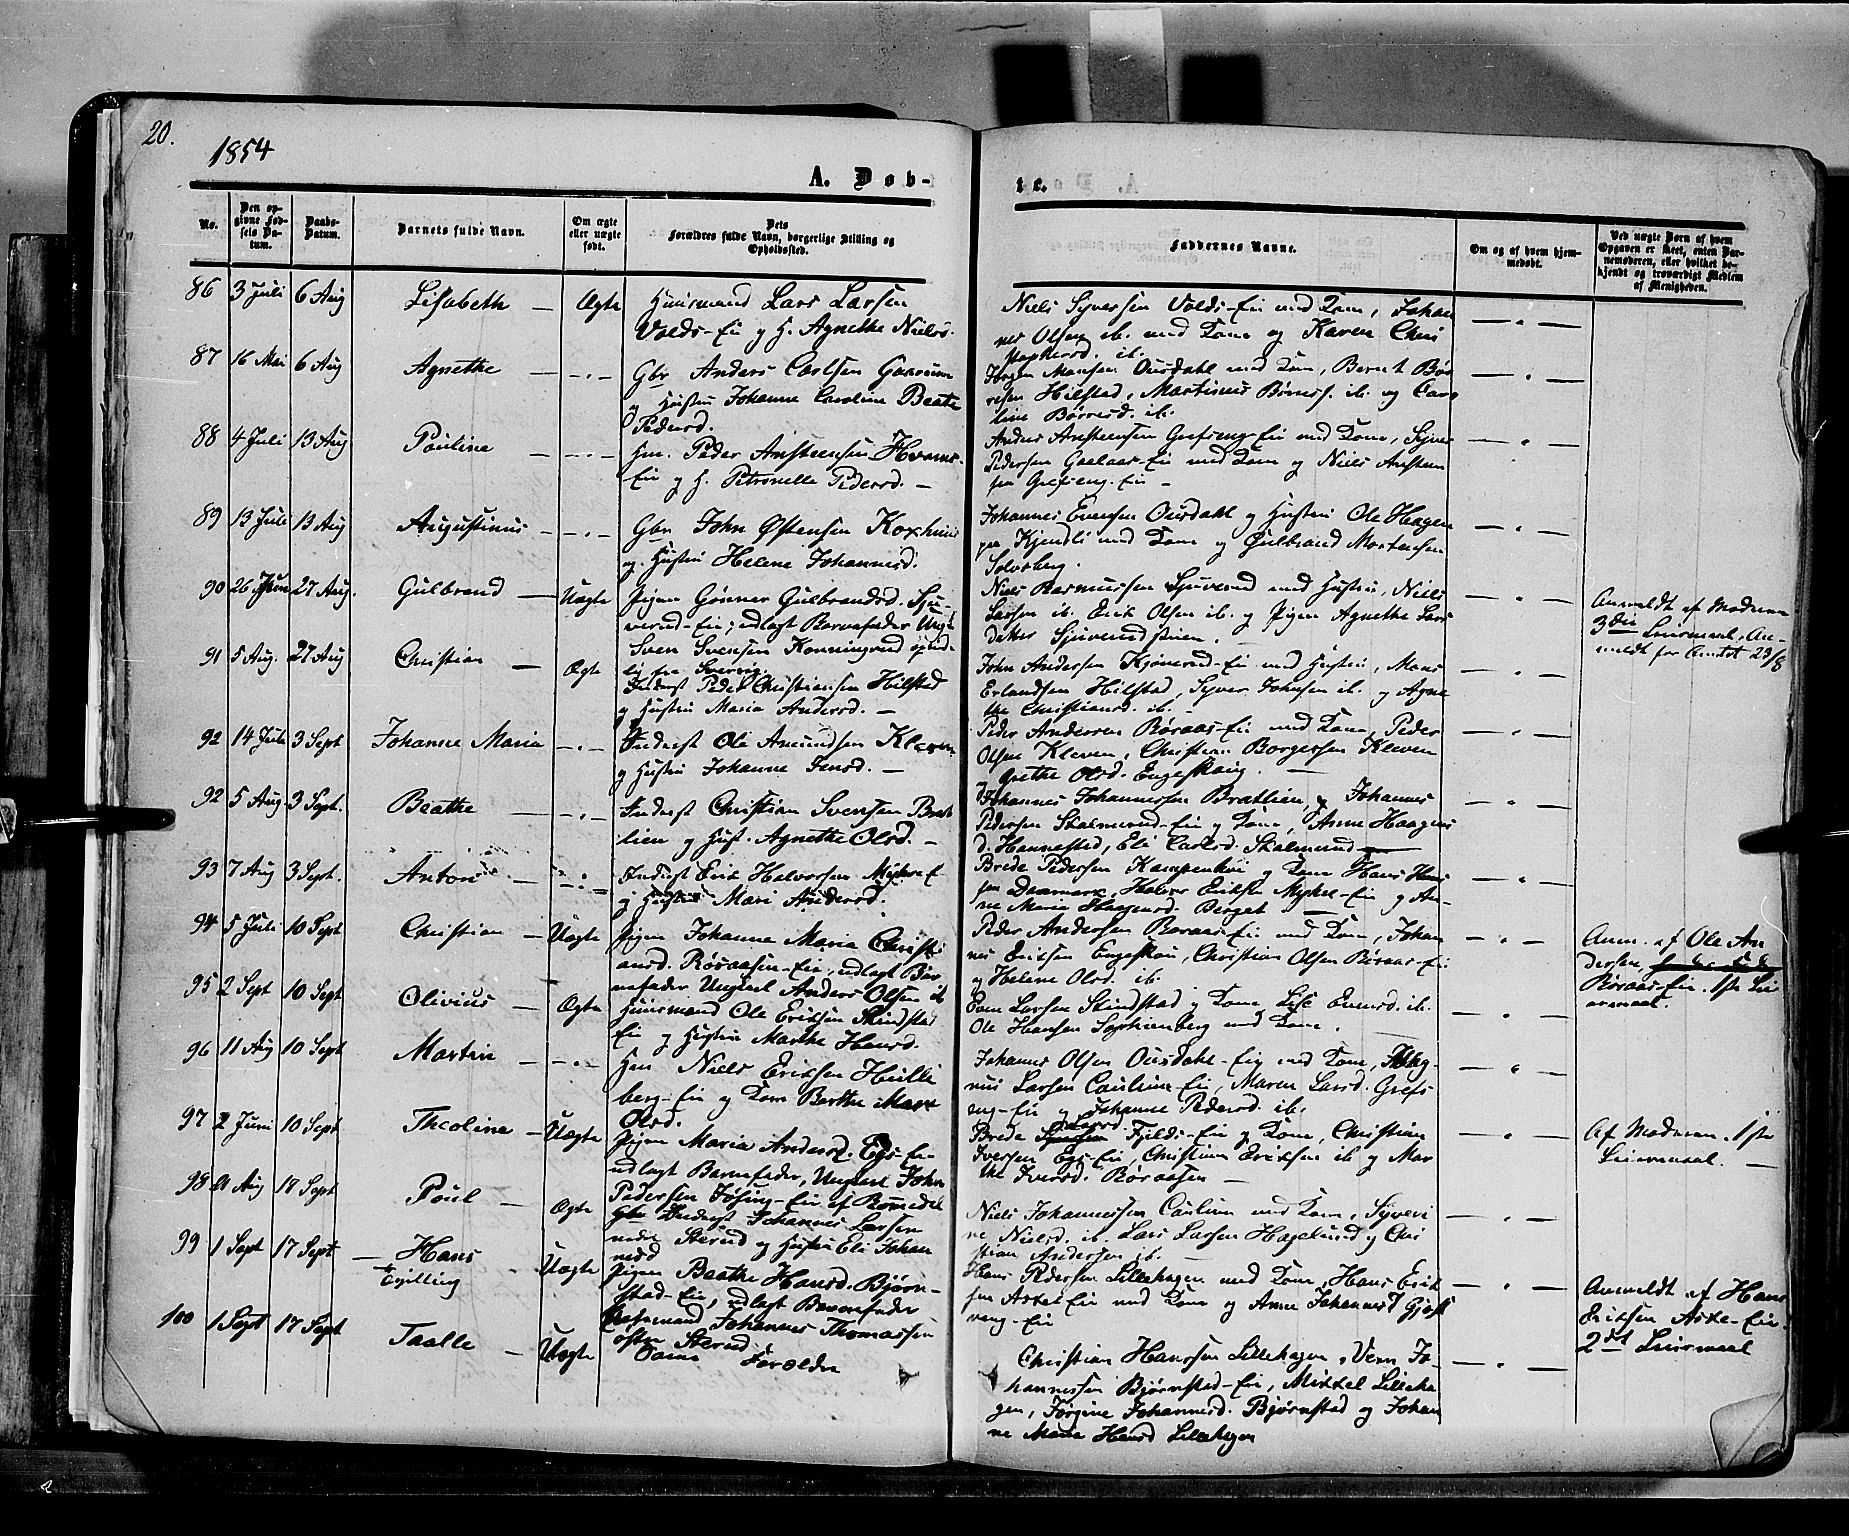 20.
1854
A. Døb-
te.
No.
Den op-
givne Fød-
sels Da-
tum.
Daabs-
Datum.
Barnets fulde Navn.
Om ægte
eller uægte
født.
Dets
Forældres fulde Navn, borgerlige Stilling og
Opholdssted.
Faddernes Navne.
Om og af hvem hjem-
medøbt.
Ved uægte Børn af hvem
Opgaven er skeet, enten Bar-
nemoderen, eller hvilket be-
kjendt og troværdigt Medlem
af Menigheden.
86 3 Juli 6 Aug Lisabeth — Ægte Huusmand Lars Larsen
Volds-Eie og H. Agnethe Nielsd.
Niels Syversen Volds-Eie med Kone, Johan
nes Olsen ib. med Kone og Karen Chri
stophersd. ib.
87 16 Mai 6 Aug Agnethe Gbr Anders Carlsen
og Hustru Johanne Caroline Beate
Pedersd.
Jørgen Monsen Ousdahl med Kone, Bernt Bør
resen Hilstad, Martinus Børres. ib. og Caro
line Børresd. ib.
88 4 Juli 13 Aug Pauline Hm. Peder Anstensen
Eie og H. Petronelle Pedersd. —
Anders Anstensen Grefseng-Eie med Kone, Syver
Pedersen Gaalaas-Eie med Kone og Niels Ansten
sen Grefseng-Eie —
89 13 Juli 13 Aug Augustinus Gbr John Østensen
og Hustru Helene Johannesd.
Johannes Evensen Ousdahl og Hustru Ole Haagen
sen Kjendli med Kone og Gulbrand Mortensen
Solberg.
90 26 Juni 27 Aug. Gulbrand — Uægte Pigen Gønner Gulbrandsd. Sju-
verud-Eie; udlagt Barnefader Ungk
Sven Svensen Konningrud
fra Sverrig.
Niels Rasmussen Sjuverud med Hustru, Niels
Larsen ib. Erik Olsen ib. og Pigen Agnethe Lars
datter Sjuverudstuen.
Anmeldt af Moderen
3die Leiermaal. An-
meldt for Amtet 29/8
91 5 Aug. 27 Aug Christian — Ægte Inderst Peder Christiansen Hilstad
og Hustru Maria Andersd. —
John Andersen Kjønerud-Eie med Hustru, Mons
Erlandsen Hilstad, Syver Johnsen ib. og Agne
the Christiansd. ib. —
92 14 Juli 3 Sept Johanne Maria Inderst Ole Amundsen Kleven
og Hustru Johanne Jensd. —
Peder Andersen Røraas-Eie med Kone, Peder
Olsen Kleven, Christian Borgersen Kleven
Grethe Olsd. Engeskaug.
92 5 Aug. 3 Sept. Beathe Inderst Christian Svensen Brat
lien og Hust. Agnethe Olsd. —
Johannes Johannessen Bratlien, og Johannes
Pedersen Skalmerud-Eie og Kone, Anne Haagens
d. Honnestad, Eli Carlsd. Skalmerud
93 7 Aug 3 Sept. Anton Inderst Erik Halvorsen Myhre-E
og Hustru Mari Andersd.
Brede Pedersen og Kone Hans Han
sen Danmark, Halvor Eriksen Myhre-Eie og An-
ne Maria Haagensd. Berget
94 5 Juli 10 Sept Christian — Uægte Pigen Johanne Maria Christi
ansd. Røraasen-Eie, udlagt Bar
nefader Ungkarl Anders Olsen ib
Peder Andersen Røraas-Eie med Kone, Johan
nes Eriksen Engeskau, Christian Olsen Røraas-Eie
og Helene Olsd. ib.
Anm. af Ole An
dersen
Røraas-Eie. 1ste Lei
ermaal.
95 2 Sept 10 Sept Olivius — Ægte Huusmand Ole Eriksen Skindstad
Eie og Hustru Marthe Hansd.
Larsen Skindstad og Kone, Lise Evensd. ib.
Ole Hansen Sophienberg med Kone.
96 11 Aug 10 Sept Martin Hm Niels Eriksen Hulli
berg-Eie og Kone Berthe Marie
Olsd.
Johannes Olsen Ousdahl-Eie med Kone, Mag
nus Larsen Caulum-Eie, Maren Larsd. Grefs
eng-Eie og Johanne Pedersd. ib.
97 2 Juni 10 Sept Theoline — Uægte Pigen Maria Andersd. Egs-Eie
udlagt Barnefader, Ungkarl John
Pedersen Jøsing-Eie af Romedal
Brede Fjelds-Eie og Kone, Christian
Iversen Egs-Eie, Christian Eriksen ib. og Mar
the Iversd. Røraasen —
Af Moderen. 1ste
Leiermaal. —
98 21 Aug 17 Sept Poul — Ægte Inderst Johannes Larsen
nedre Sterud og Hustru Eli Johan
nesd
Niels Johannessen Caulum med Kone, Syveri
ne Nielsd. ib. Lars Larsen Hagelund og Chri
stian Andersen ib. —
99 1 Sept 17 Sept — Hans
Tvilling
— Uægte Pigen Beathe Hansd. Bjørn-
stad-Eie, udlagt Barnefader
Enkemand Johannes Thomassen
østre Sterud.
Hans Pedersen Lillehagen med Kone, Hans Erik
sen Aske-Eie med Kone og Anne Johannesd Grefs
veng-Eie
Anmeldt af Hans
Eriksen Aske-Eie.
2det Leiermaal
100 1 Sept 17 Sept Taalle — Uægte Samme Forældre
Christian Hanssen Lillehagen, Jo-
hannessen Bjørnstad-Eie, Mikkel Lilleha
gen, Jørgine Johannesd. Bjørnstad og Johan
ne Marie Hansd Lillehagen